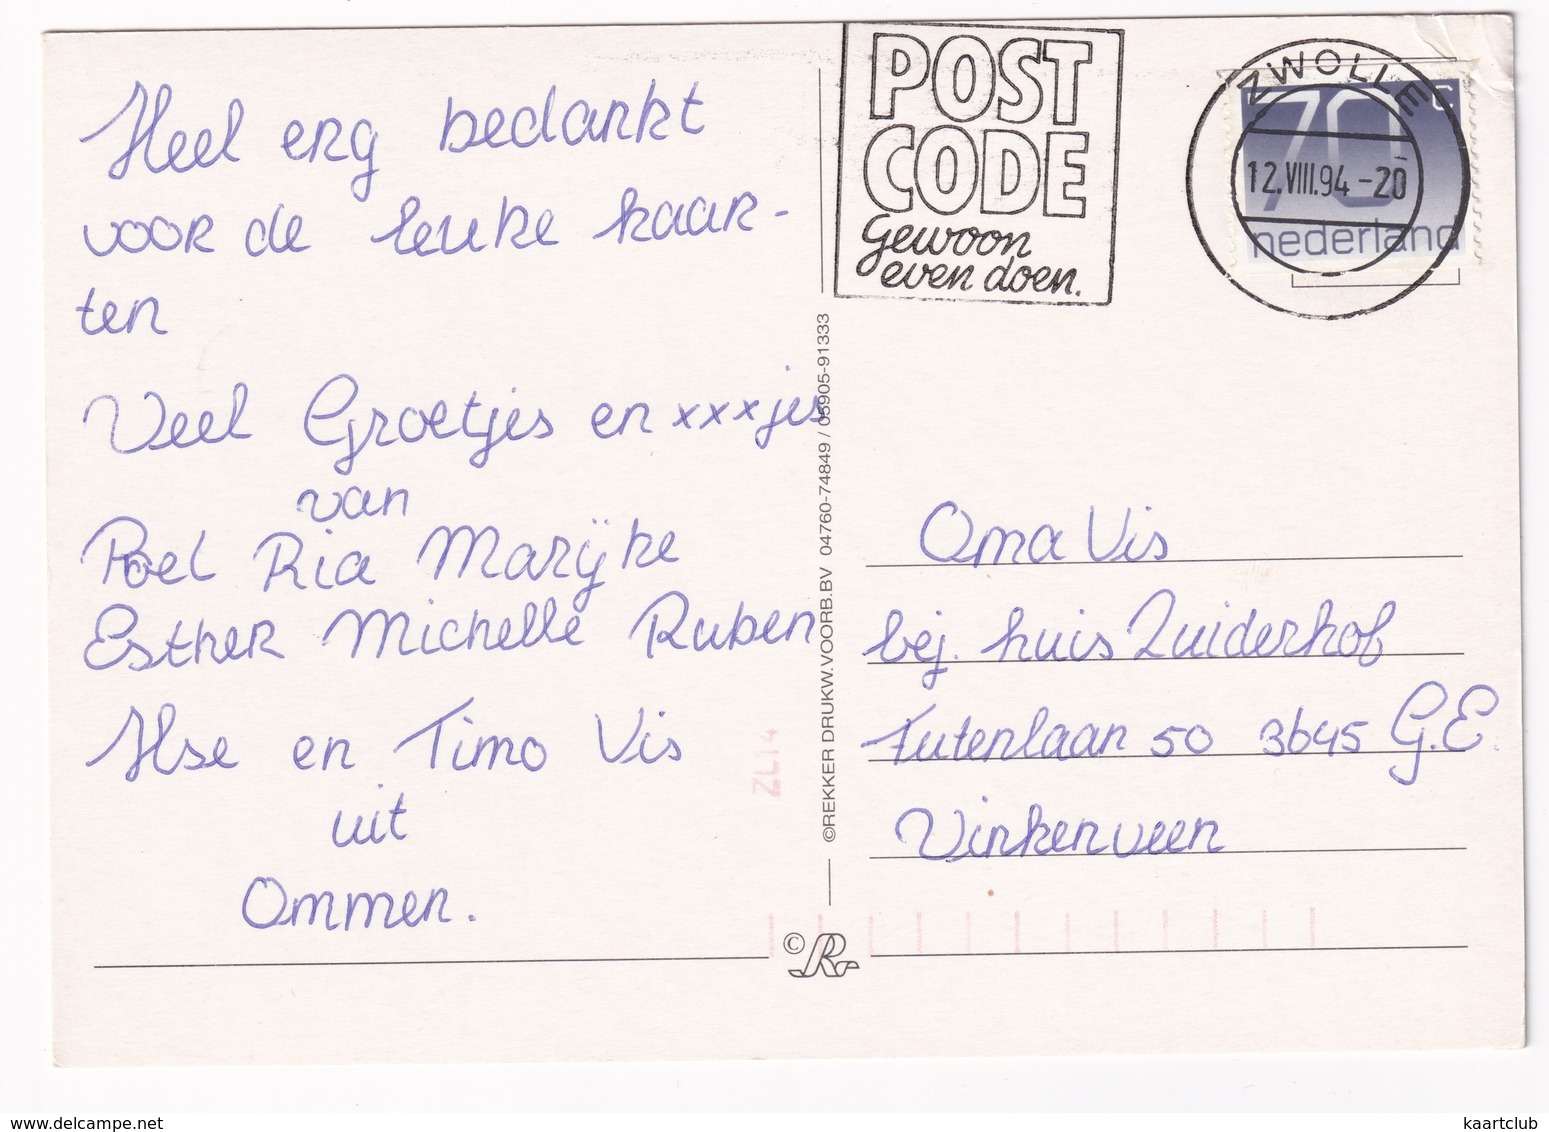 Heel erg bedankt
voor de leuke kaar-
ten
Veel Groetjes en xxxjes
van
Roel Ria Marijke
Esther Michelle Ruben
Ilse en Timo Vis
uit
Ommen.
POST
CODE
Gewoon
even doen.
ZWOLLE
12.VIII.94-20
70 c
nederland
©REKKER DRUKW.VOORB.BV 04760-74849 / 05905-91333
Oma Vis
bej. huis Zuiderhof
Futenlaan 50 3645 G.E.
Vinkenveen
ZL14
© R
delcampe.net
kaartclub